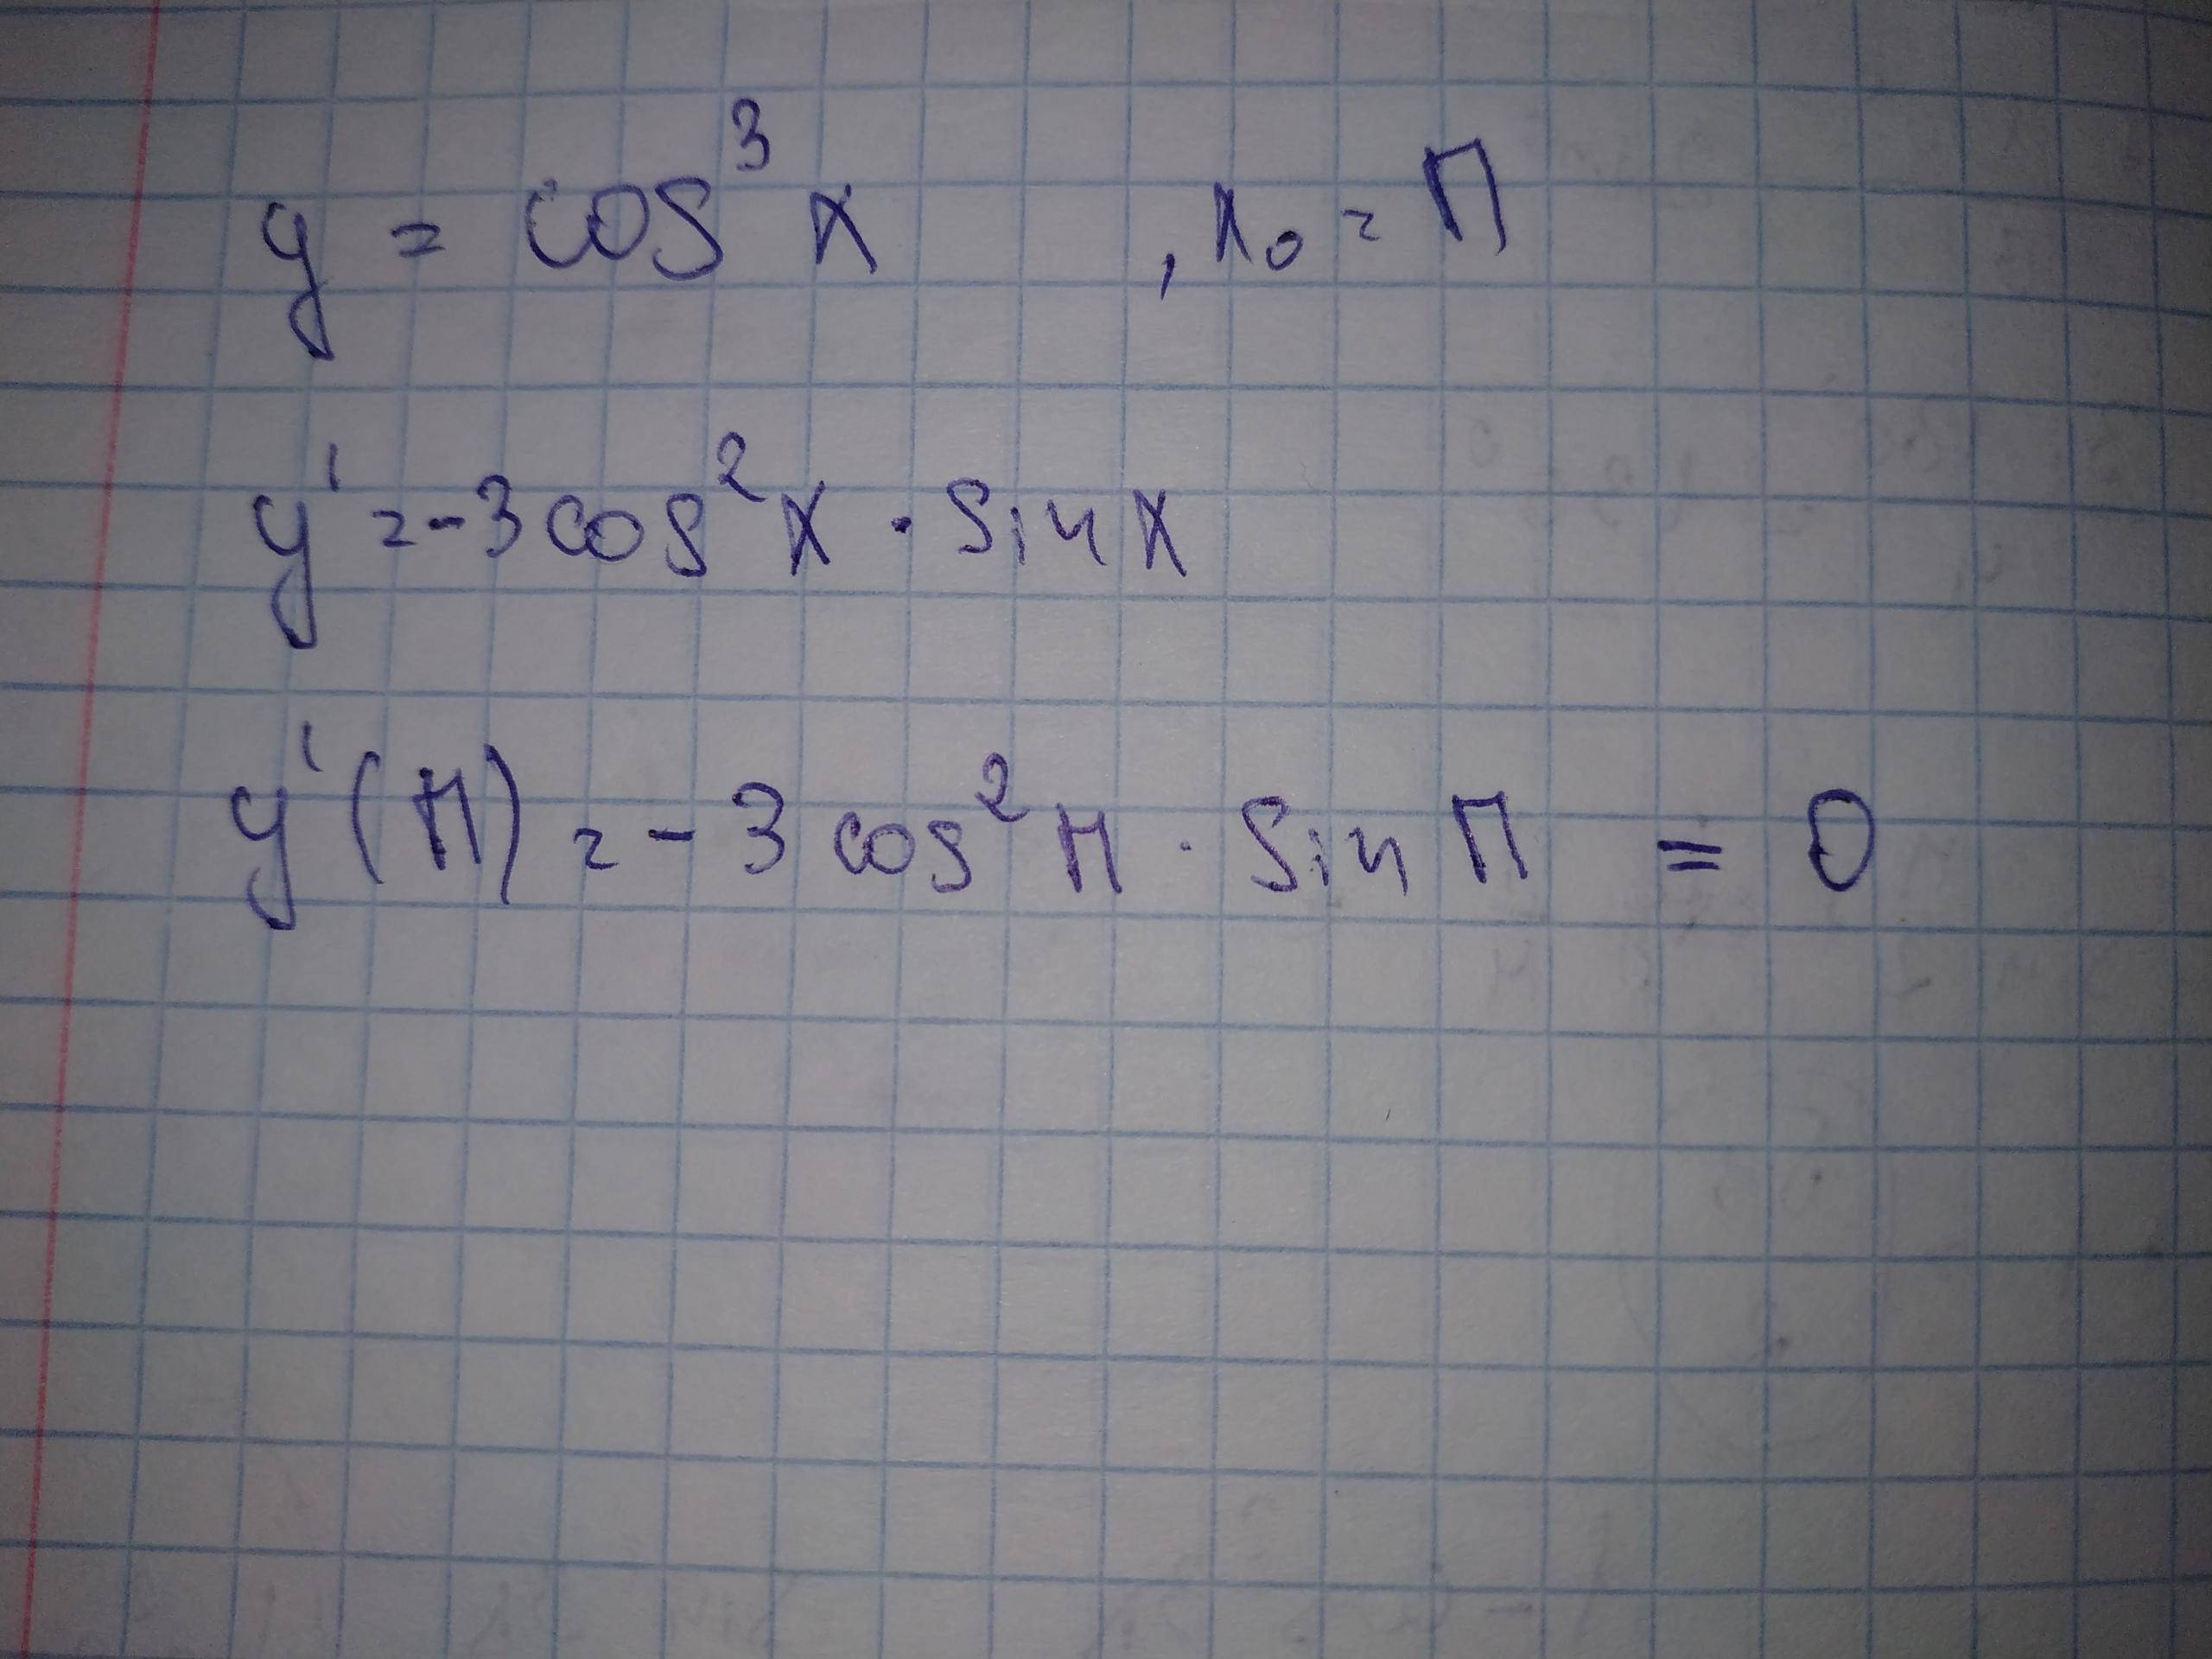 y = cos³ x , x₀ = П
y' = -3 cos² x · sin x
y'(П) = -3 cos² П · sin П = 0